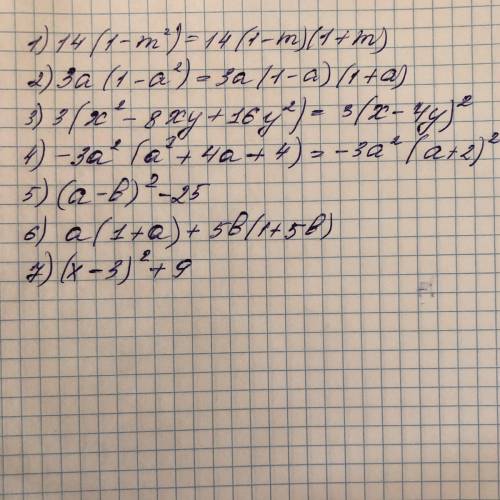 1) 14(1-m²) = 14(1-m)(1+m)
2) 3a(1-a²) = 3a(1-a)(1+a)
3) 3(x²-8xy+16y²) = 3(x-4y)²
4) -3a²(a²+4a+4) = -3a²(a+2)²
5) (a-b)²-25
6) a(1+a)+5b(1+5b)
7) (x-3)²+9